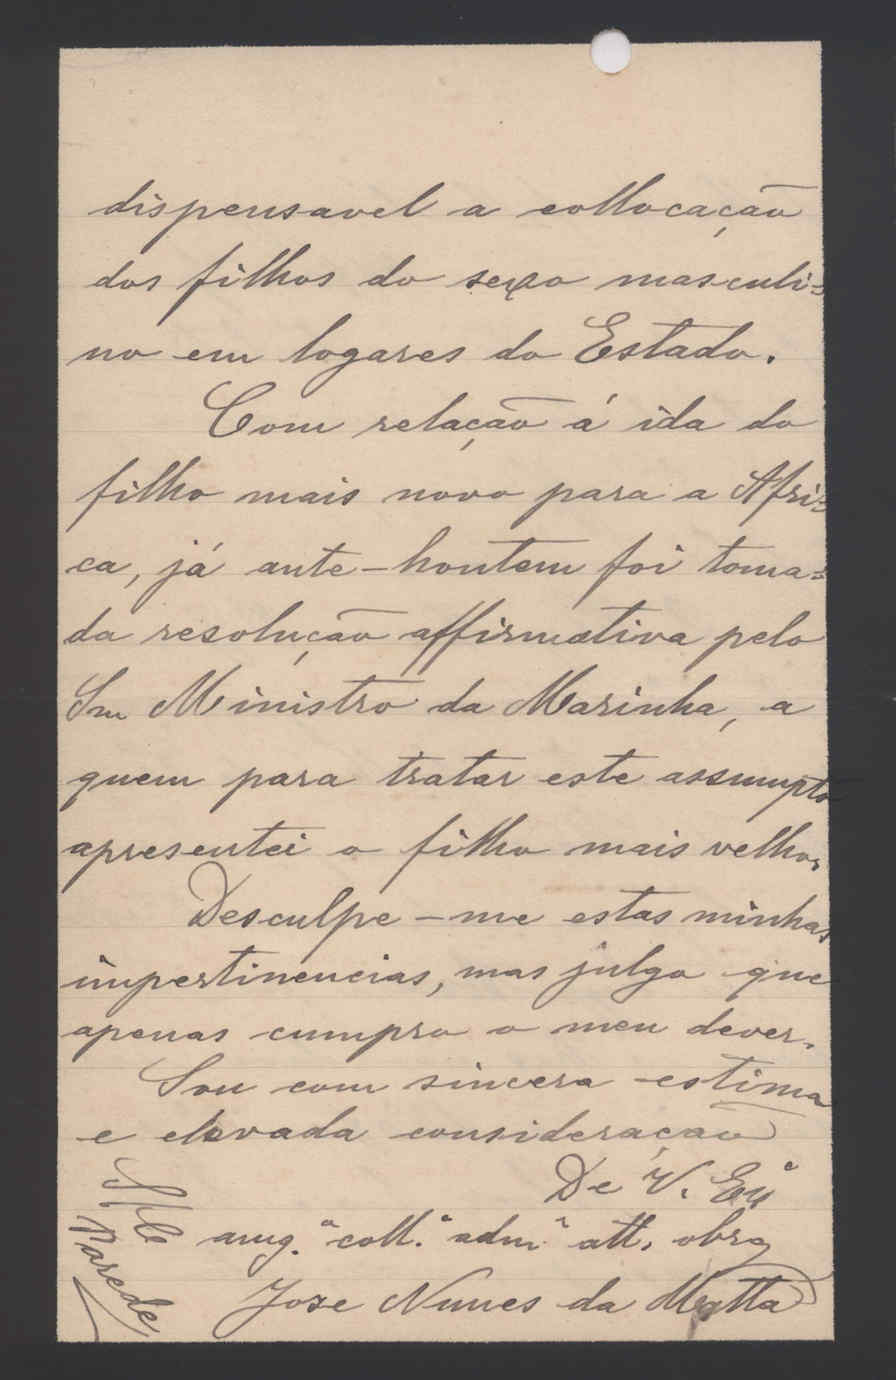 dispensavel a collocação
dos filhos do sexo masculi=
no em logares do Estado.
Com relação á ida do
filho mais novo para a Afri=
ca, já ante-hontem foi toma=
da resolução affirmativa pelo
Snr Ministro da Marinha, a
quem para tratar este assumpto
apresentei o filho mais velho.
Desculpe-me estas minhas
impertinencias, mas julgo que
apenas cumpro o meu dever.
Sou com sincera estima
e elevada consideração
De V. Exª
amg.º coll.º adm.º att. obrg
Jose Nunes da Matta
S/C
Parede